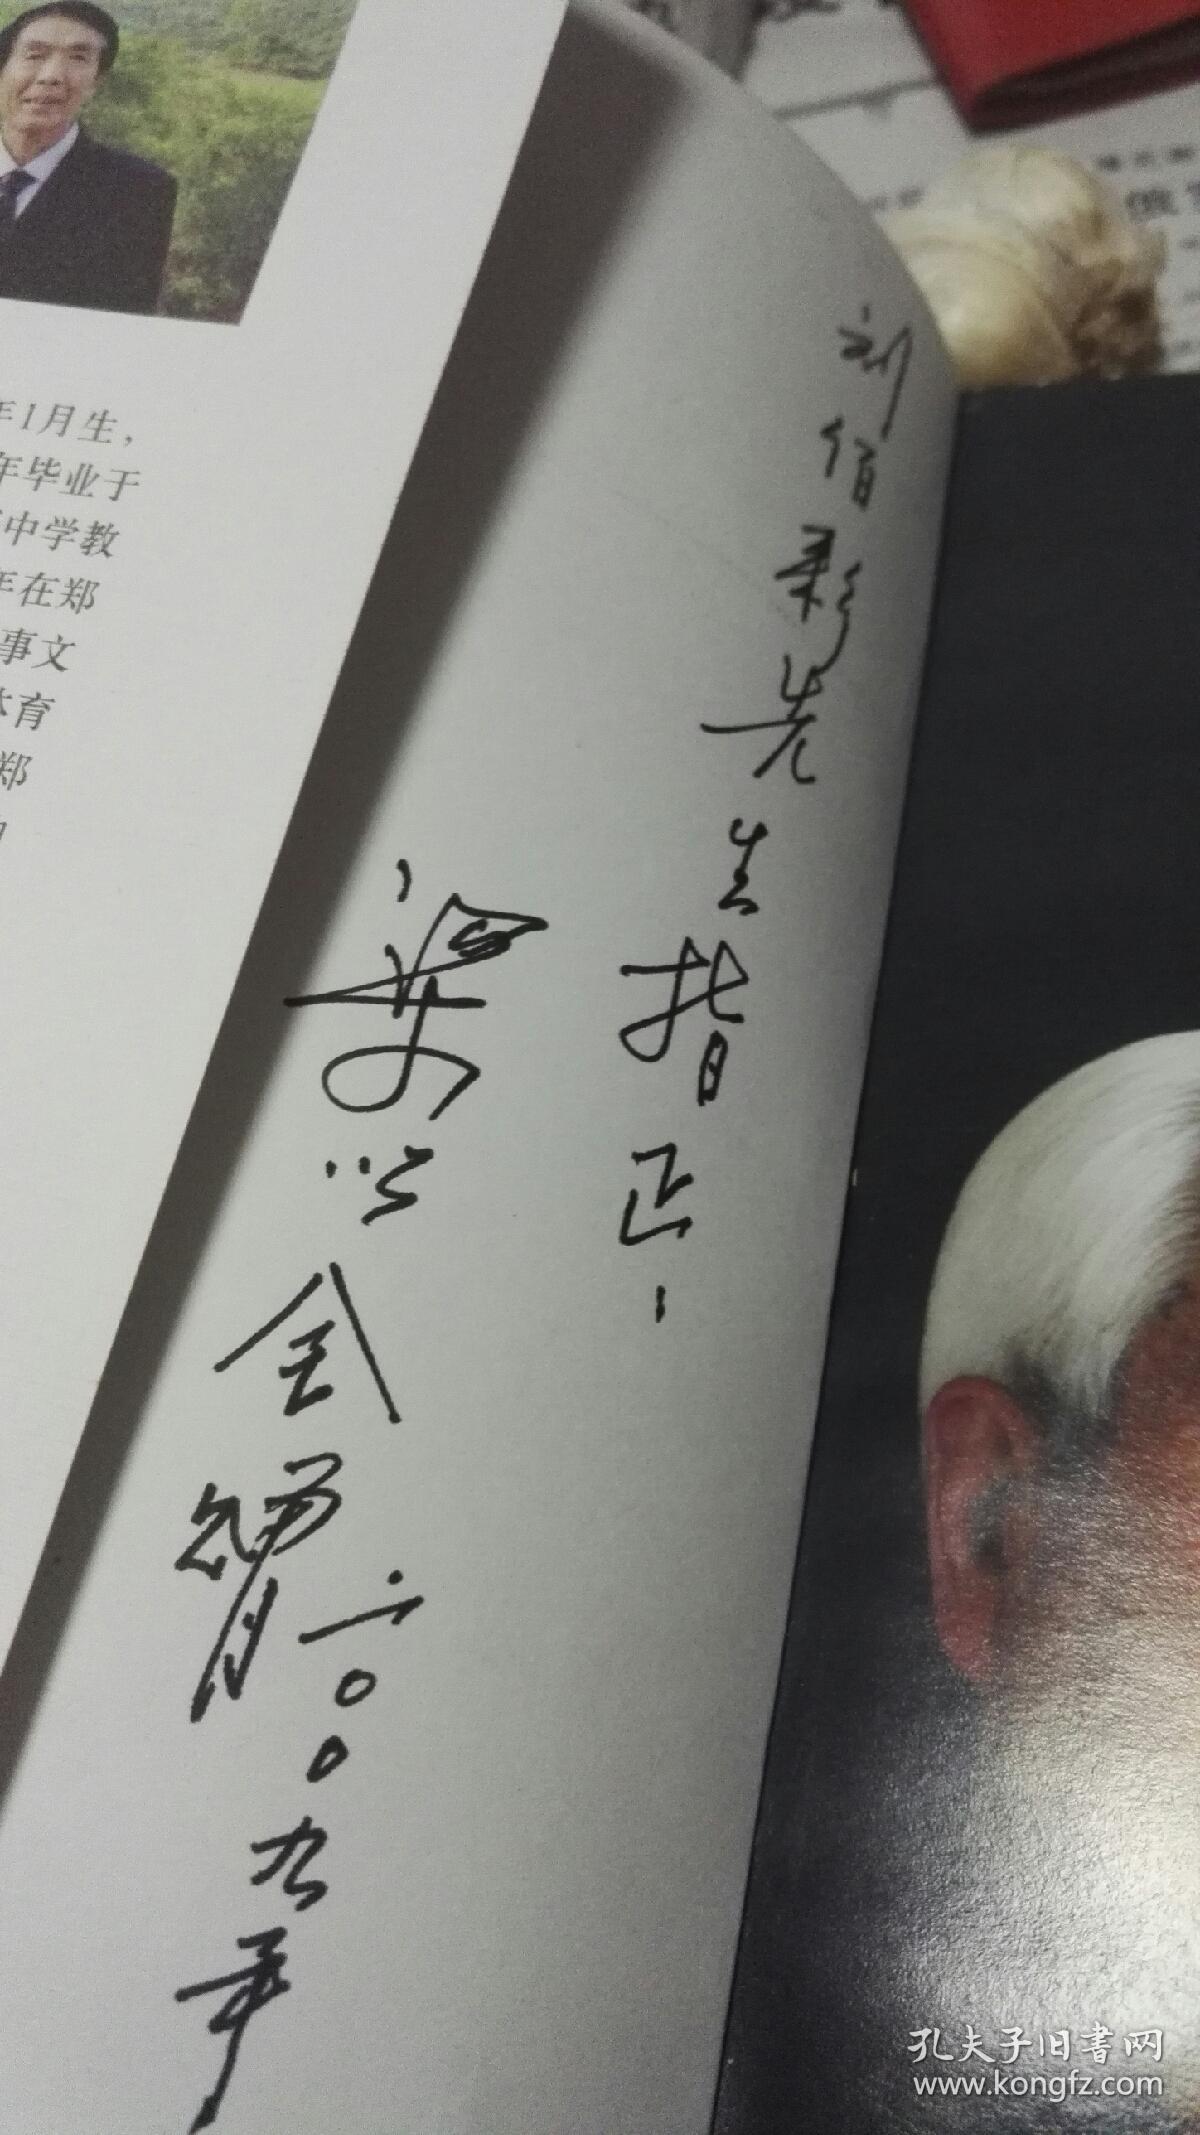 年1月生，
年毕业于
中学教
年在郑
事文
体育
郑
刘佰彩先生指正
梁以全赠
二〇〇九年
俄
孔夫子旧书网
www.kongfz.com